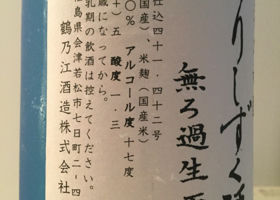 りしずく
無ろ過生
仕込四十一・四十二号
国産)、米麹(国産米)
〇% アルコール度 十七度
+)五 酸度 一・三
蔵になってから。
乳期の飲酒は控えてください。
島県会津若松市七日町二-四
鶴乃江酒造株式会社